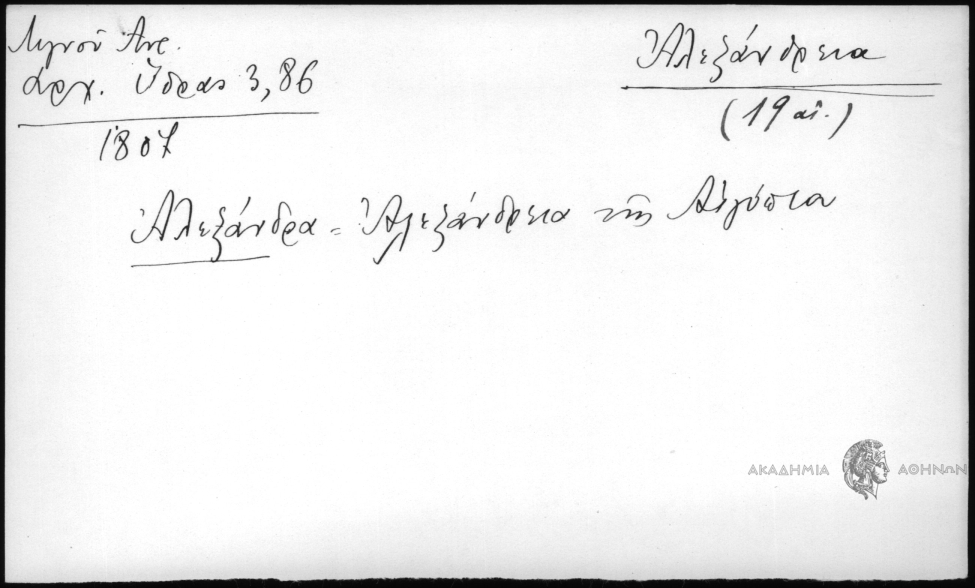 Λιγνοῦ Ἀντ.
Ἀρχ. Ὕδρας 3,86
1807
Ἀλεξάνδρεια
(19 αἰ.)
Ἀλεξάνδρα = Ἀλεξάνδρεια τῆς Αἰγύπτου
ΑΚΑΔΗΜΙΑ ΑΘΗΝΩΝ